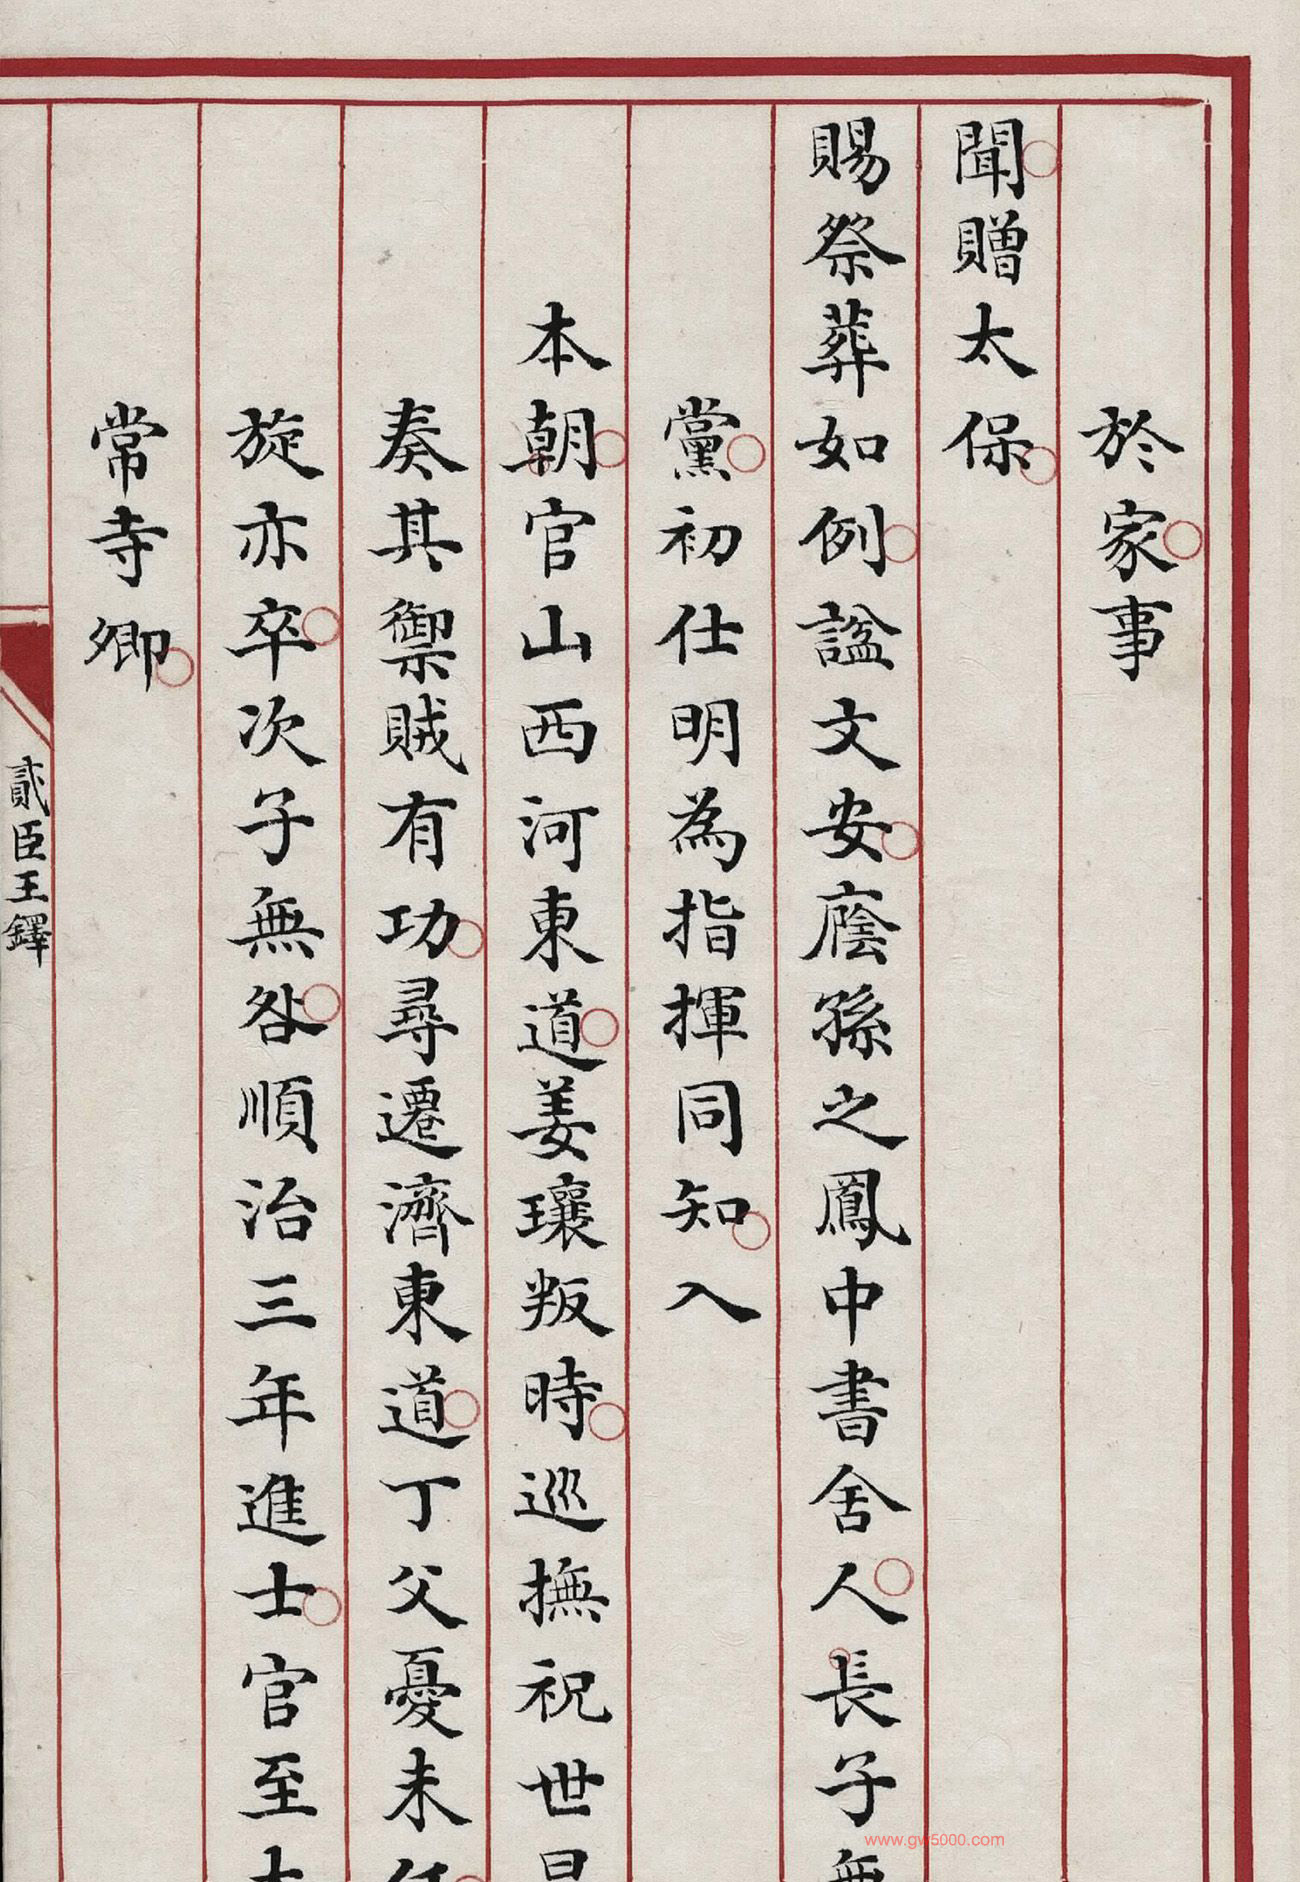 於家事
聞贈太保
賜祭葬如例諡文安廕孫之鳳中書舍人長子無
黨初仕明為指揮同知入
本朝官山西河東道姜瓖叛時巡撫祝世昌
奏其禦賊有功尋遷濟東道丁父憂未任
旋亦卒次子無咎順治三年進士官至太
常寺卿
貳臣王鐸
www.gw5000.com